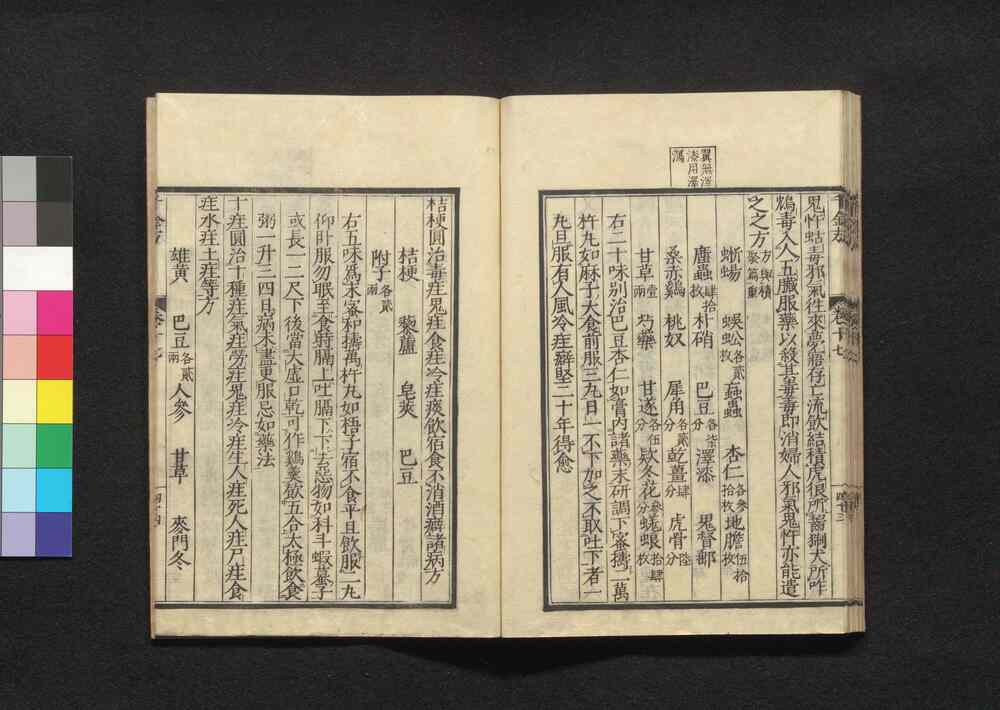 翼無澤
漆用澤
瀉
鬼忤蛄毒邪氣往來夢寤存亡流飲結積虎狠所齧猘犬所咋
鴆毒入人五臟服藥以殺其毒毒即消婦人邪氣鬼忤亦能遣
之之方方與積聚篇重
蜥蜴 蜈蚣各貳枚 蝱蟲 杏仁各參拾枚 地膽伍拾枚
䗪蟲肆拾枚 朴硝 巴豆 各柒分 澤漆 鬼督郵
桑赤雞 桃奴 犀角各貳分 乾薑肆分 虎骨陸分
甘草壹兩 芍藥 甘遂各伍分 欵冬花參分 蜣蜋拾肆枚
右二十味別治巴豆杏仁如膏内諸藥末研調下蜜擣二萬
杵丸如麻子大食前服三丸日一不下加之不取吐下者一
丸旦服有人風冷疰癖堅二十年得愈
千金方
卷十七
桔梗圓治毒疰鬼疰食疰冷疰痰飲宿食不消酒癖諸病方
桔梗 藜蘆 皂莢 巴豆
附子各貳兩
右五味爲末蜜和擣萬杵丸如梧子宿不食平旦飲服二丸
仰卧服勿眠至食時膈上吐膈下下去惡物如科斗蝦蟇子
或長一二尺下後當大虚口乾可作鷄羹飲五合大極飲食
粥一升三四日病未盡更服忌如藥法
十疰圓治十種疰氣疰勞疰鬼疰冷疰生人疰死人疰尸疰食
疰水疰土疰等方
雄黄 巴豆各貳兩 人參 甘草 麥門冬